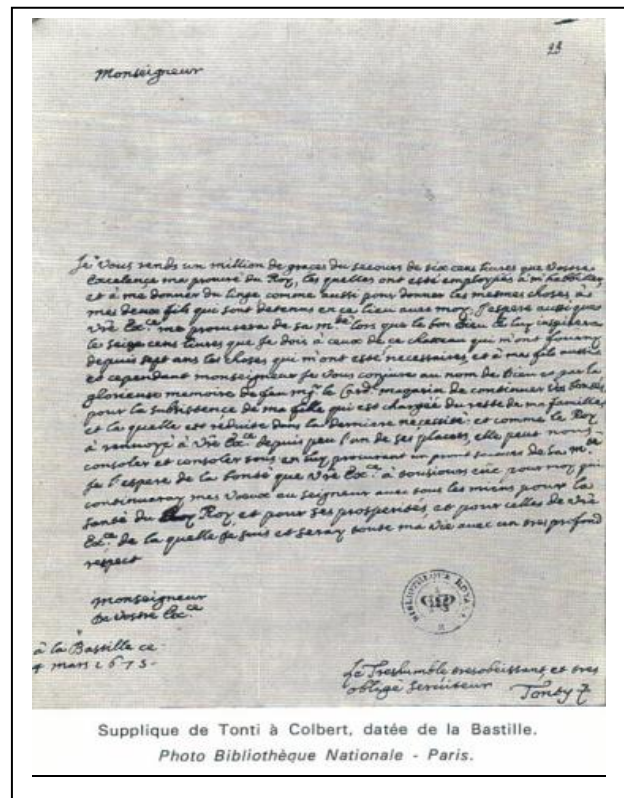 23
Monseigneur
Je Vous rends un million de graces du secours de six cens livres que Vostre
Excelence ma procuré du Roy, les quelles ont esté employées a m'habiller,
et à me donner du linge comme aussi pour donner les mesmes choses à
mes deux fils qui sont detenus en ce lieu avec moy. J'espere aussi que
Vre Exce me procurera de sa mté lors que le bon Dieu luy inspirera
les seize cens livres que Je dois à ceux de ce chateau qui m'ont fourny
depuis sept ans les choses qui m'ont esté necessaires, et à mes fils aussi
et cependant monseigneur Je Vous conjure au nom de Dieu et par la
glorieuse memoire de feu mgr le Cardl magarin de continuer Vos bontés
pour la subsistence de ma fille qui est chargée du reste de ma famille
et la quelle est reduite dans la derniere necessité: et comme le Roy
à renvoyé à Vre Exce depuis peu l'un de ses placets, elle peut nous
consoler et consoler tous en luy procurant un prompt secours de sa mté
Je l'espere de la bonté que Vre Exce à tousiours eue pour moy qui
continueray mes Vœux au seigneur avec tous les miens pour la
santé du Roy, et pour ses prosperites, et pour celles de Vre
Exce de la quelle Je suis et seray toute ma Vie avec un tres profond
respect
Monseigneur
De Vostre Exce
BIBLIOTHEQUE ROYALE
à la Bastille ce
4 mars 1675.
Le Treshumble tresobeissant, et tres
obligé serviteur Tonty
Supplique de Tonti à Colbert, datée de la Bastille.
Photo Bibliothèque Nationale - Paris.